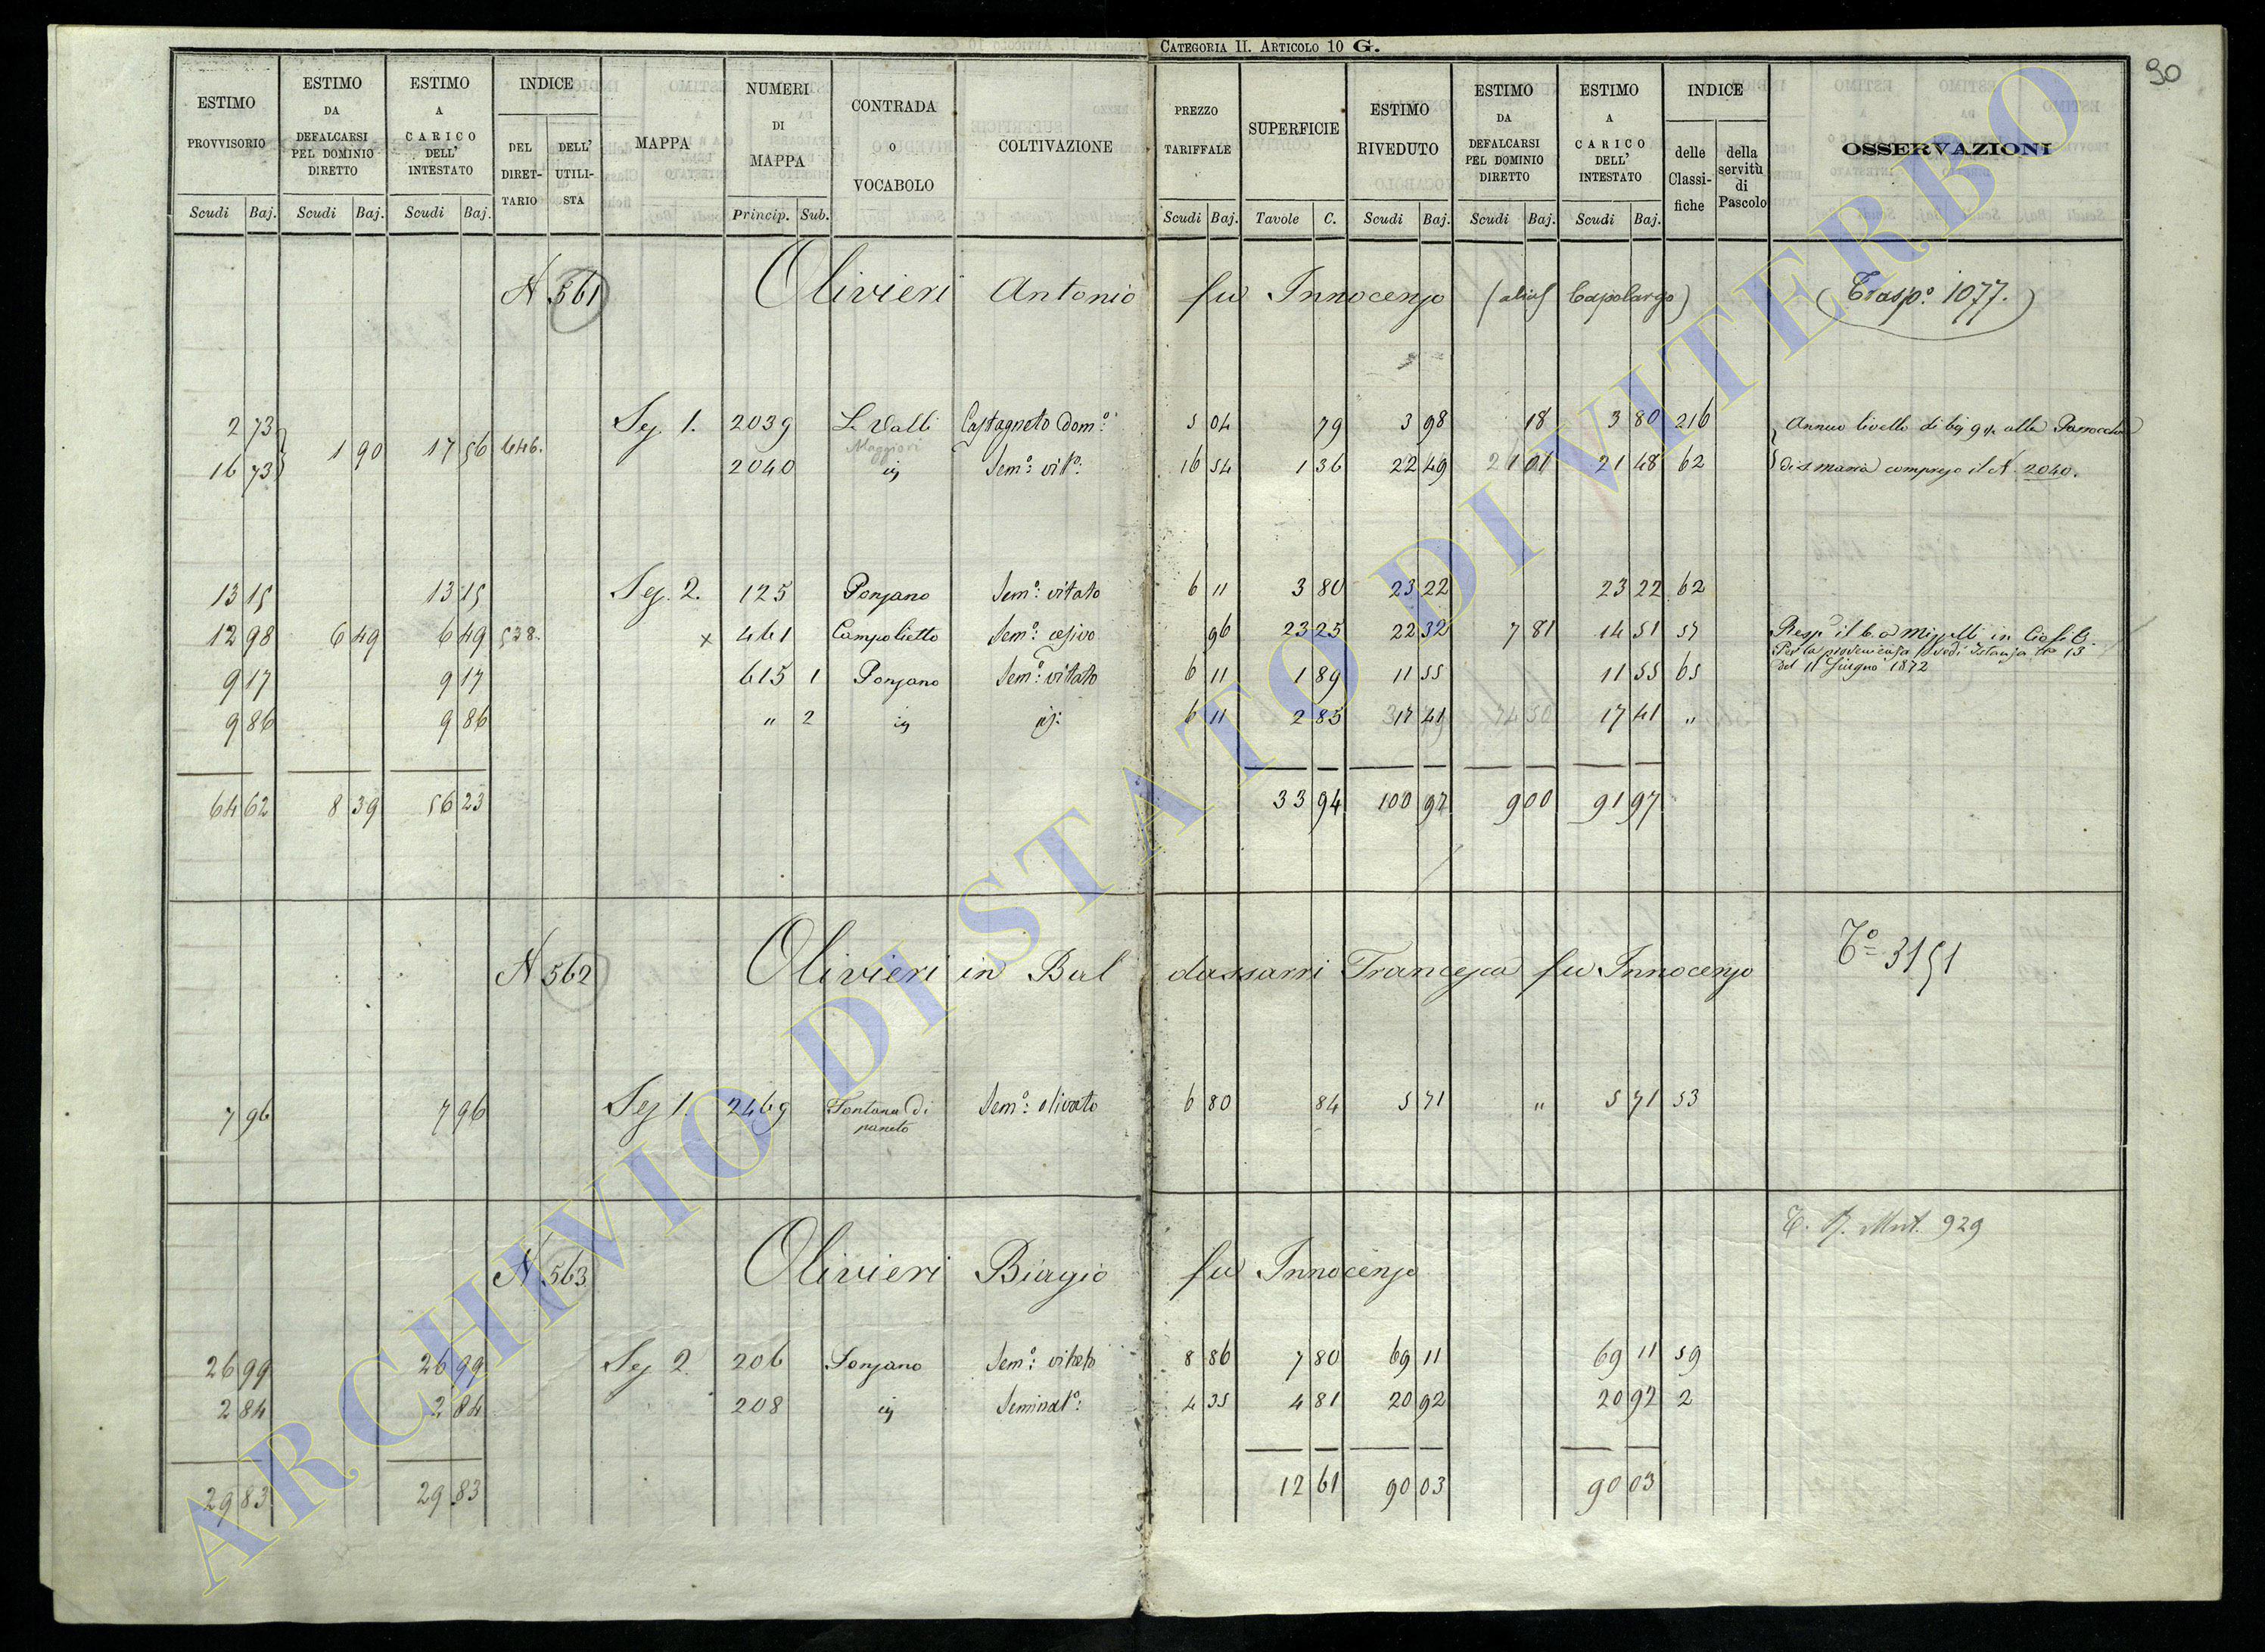 CATEGORIA II. ARTICOLO 10 G.
90
ESTIMO PROVVISORIO Scudi Baj.
ESTIMO DA DEFALCARSI PEL DOMINIO DIRETTO Scudi Baj.
ESTIMO A CARICO DELL' INTESTATO Scudi Baj.
INDICE DEL DIRET-TARIO DELL' UTILI-STA
MAPPA
NUMERI DI MAPPA Princip. Sub.
CONTRADA O VOCABOLO
COLTIVAZIONE
PREZZO TARIFFALE Scudi Baj.
SUPERFICIE Tavole C.
ESTIMO RIVEDUTO Scudi Baj.
ESTIMO DA DEFALCARSI PEL DOMINIO DIRETTO Scudi Baj.
ESTIMO A CARICO DELL' INTESTATO Scudi Baj.
INDICE delle Classi-fiche della servitù di Pascolo
OSSERVAZIONI
N 561 Olivieri Antonio fu Innocenzo (alias Capolargo) (Trasp.º 1077.)
2 73 1 90 17 56 646. Sez 1. 2039 Le Valli Castagneto dom.º 5 04 79 3 98 18 3 80 216 Annuo livello di baj alla Parrocchia
Maggiori
16 73 2040 id Sem.º vit.º 16 54 1 36 22 49 1 01 21 48 62 di S Maria compreso il N. 2040.
13 15 13 15 Sez. 2. 125 Ponzano Sem.º vitato 6 11 3 80 23 22 23 22 62
12 98 6 49 6 49 538. x 461 Campolietto Sem.º olivo 96 23 25 22 32 7 81 14 51 57
Per la provenienza vedi Istanza No 13
del 11 Giugno 1872
9 17 9 17 615 1 Ponzano Sem.º vitato 6 11 1 89 11 55 11 55 65
9 86 9 86 " 2 id id: 6 11 2 85 17 41 17 41 "
64 62 8 39 56 23 33 94 100 97 9 00 91 97
N 562 Olivieri in Bal dassarri Francesca fu Innocenzo Tº 3151
7 96 7 96 Sez 1. 2469 Fontana di paneto Sem.º olivato 6 80 84 5 71 " 5 71 53
T. 7. Mut. 929
N 563 Olivieri Biagio fu Innocenzo
26 99 26 99 Sez 2. 206 Ponzano Sem.º vitato 8 86 7 80 69 11 69 11 59
2 84 2 84 208 id Seminat.º 4 35 4 81 20 92 20 92 2
29 83 29 83 12 61 90 03 90 03
ARCHIVIO DI STATO DI VITERBO